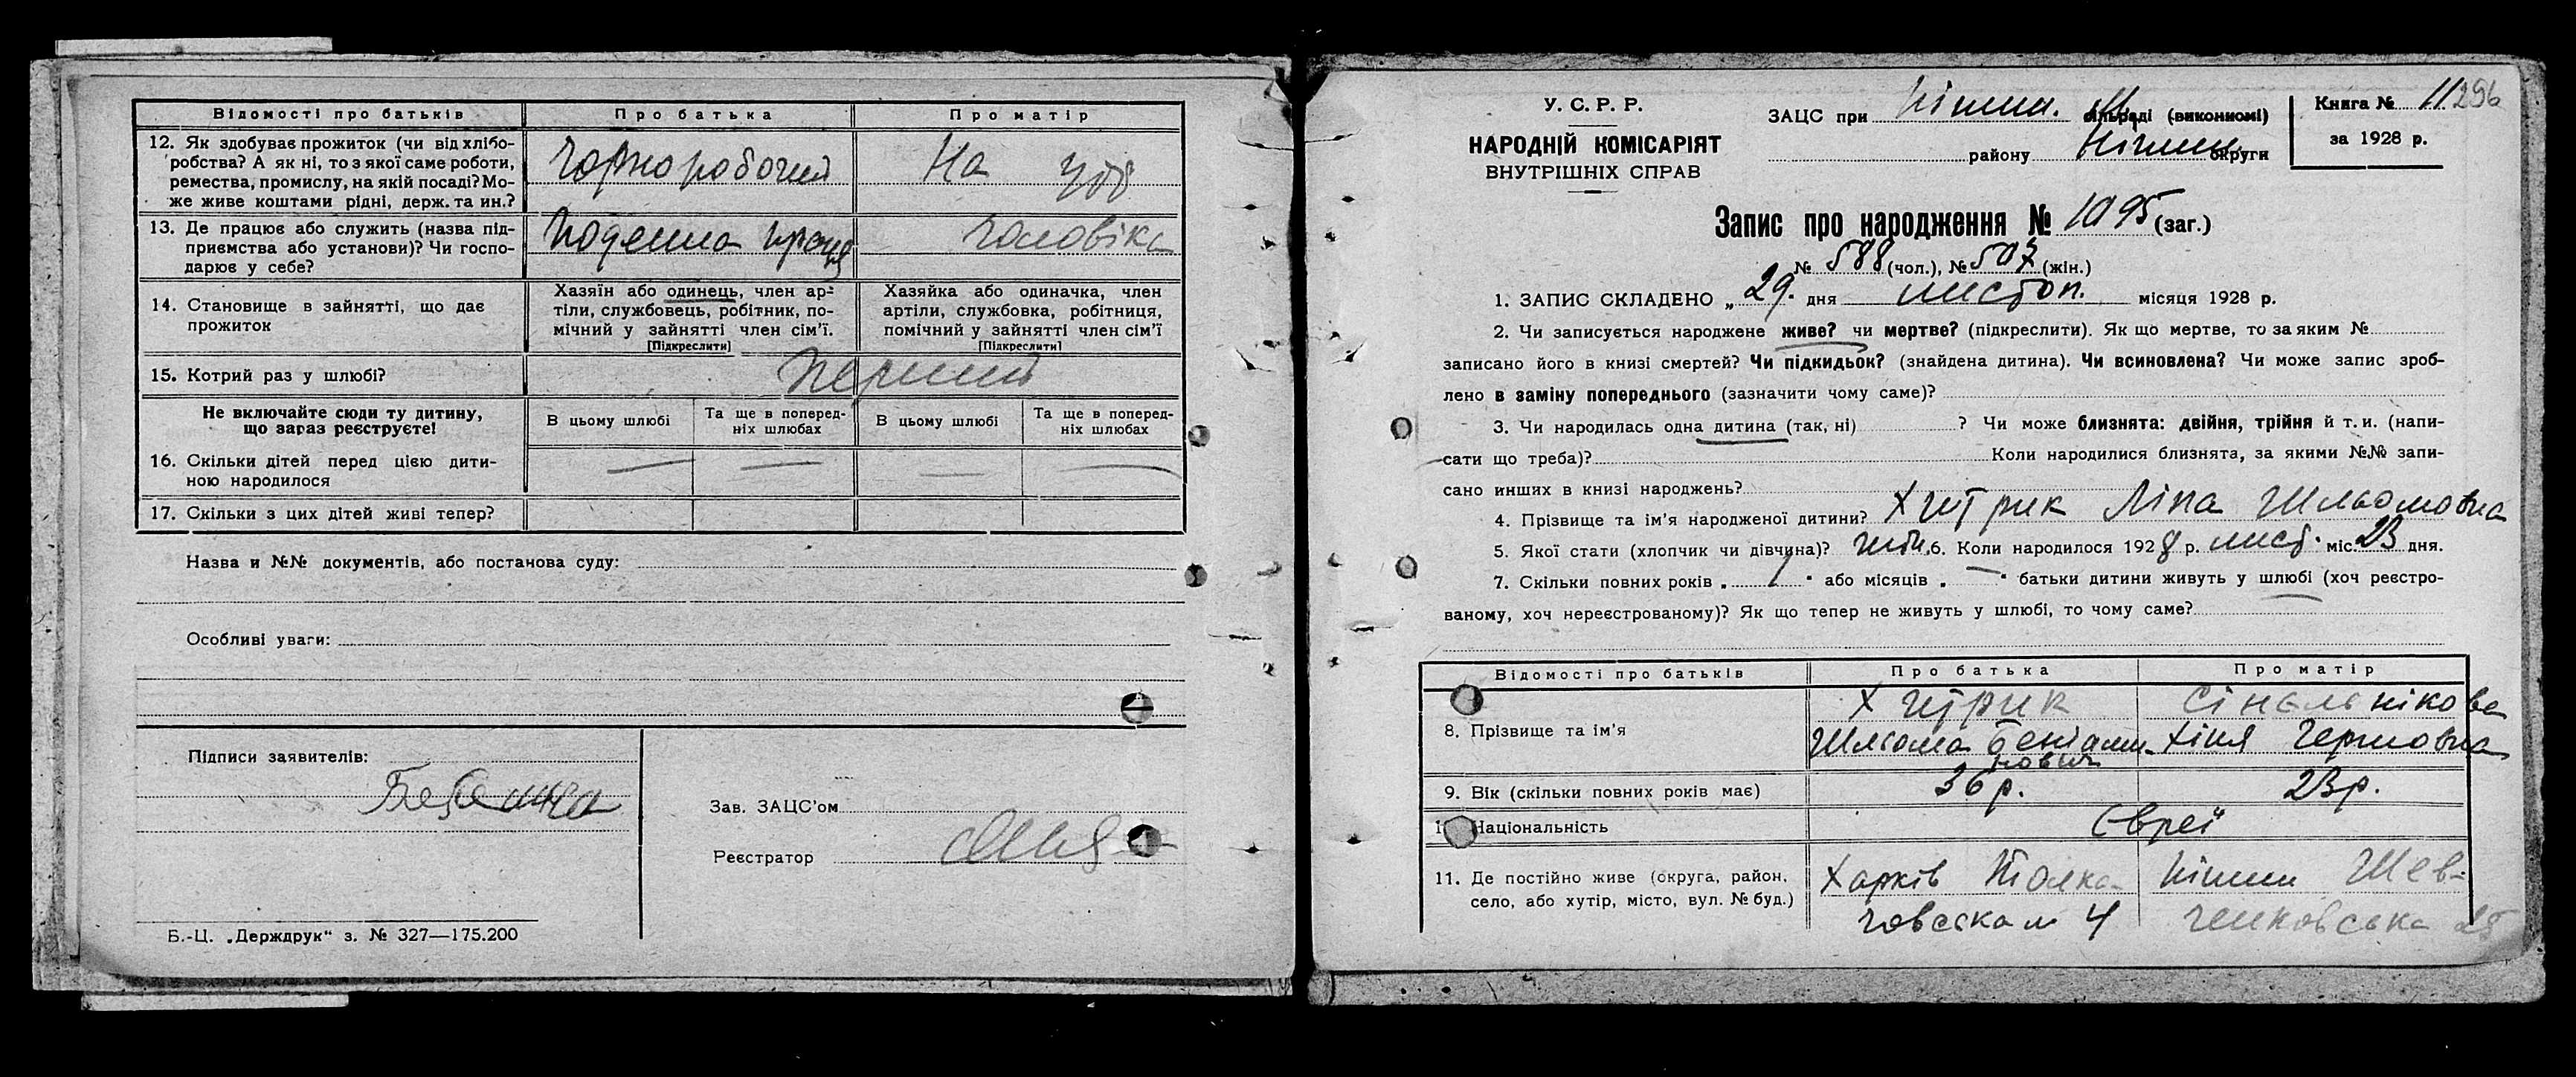 Відомості про батьків
Про батька
Про матір
12. Як здобуває прожиток (чи від хлібо-
робства? А як ні, то з якої саме роботи,
ремества, промислу, на якій посаді? Мо-
же живе коштами рідні, держ. та ин.?
Чорноробочий
На утр
13. Де працює або служить (назва під-
приємства або установи)? Чи госпо-
дарює у себе?
Поденна праця
чоловіка
14. Становище в зайнятті, що дає
прожиток
Хазяїн або одинець, член ар-
тіли, службовець, робітник, по-
мічний у зайнятті член сім'ї.
[Підкреслити]
Хазяйка або одиначка, член
артіли, службовка, робітниця,
помічний у зайнятті член сім'ї
[Підкреслити]
15. Котрий раз у шлюбі?
Перший
Не включайте сюди ту дитину,
що зараз реєструєте!
В цьому шлюбі
Та ще в поперед-
ніх шлюбах
В цьому шлюбі
Та ще в поперед-
ніх шлюбах
16. Скільки дітей перед цією дити-
ною народилося
— — — —
17. Скільки з цих дітей живі тепер?
Назва и №№ документів, або постанова суду:
Особливі уваги:
Підписи заявителів:
Зав. ЗАЦС'ом
Реєстратор
Б.-Ц. „Держдрук" з. № 327—175.200
У. С. Р. Р.
НАРОДНІЙ КОМІСАРІЯТ
ВНУТРІШНІХ СПРАВ
ЗАЦС при Ніжин. сільраді (виконкомі)
району Ніжин. округи
Книга № 11 296
за 1928 р.
Запис про народження № 1095 (заг.)
№ 588 (чол.), № 507 (жін.)
1. ЗАПИС СКЛАДЕНО „29. дня листоп. місяця 1928 р.
2. Чи записується народжене живе? чи мертве? (підкреслити). Як що мертве, то за яким №
записано його в книзі смертей? Чи підкидьок? (знайдена дитина). Чи всиновлена? Чи може запис зроб-
лено в заміну попереднього (зазначити чому саме)?
3. Чи народилась одна дитина (так, ні) ? Чи може близнята: двійня, трійня й т. и. (напи-
сати що треба)? Коли народилися близнята, за якими №№ запи-
сано инших в книзі народжень?
4. Прізвище та ім'я народженої дитини? Хитрик Ліпа Шльомовна
5. Якої статі (хлопчик чи дівчина)? жін. 6. Коли народилося 1928 р. лист. міс. 23 дня.
7. Скільки повних років „ 1 " або місяців „ — " батьки дитини живуть у шлюбі (хоч реєстро-
ваному, хоч нереєстрованому)? Як що тепер не живуть у шлюбі, то чому саме?
Відомості про батьків
Про батька
Про матір
8. Прізвище та ім'я
Хитрик
Шльома Беніами-
нович
Сінельнікова
Хіня Гершовна
9. Вік (скільки повних років має)
36 р.
23 р.
10. Національність
Євреї
11. Де постійно живе (округа, район,
село, або хутір, місто, вул. № буд.)
Харків
4
Ніжин Шев-
ченковська 25